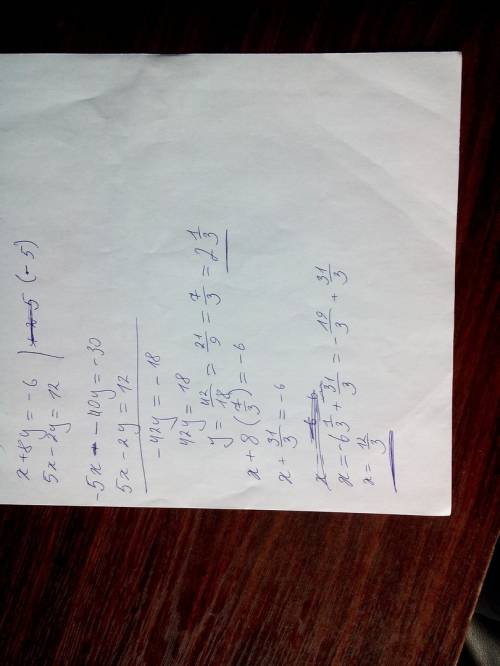 x + 8y = -6 | (-5)
5x - 2y = 12
-5x - 40y = -30
5x - 2y = 12
-42y = -18
42y = 18
y = 42/18 = 21/9 = 7/3 = 2 1/3
x + 8(7/3) = -6
x + 31/3 = -6
x = -6 1/3 + 31/3 = -19/3 + 31/3
x = 12/3